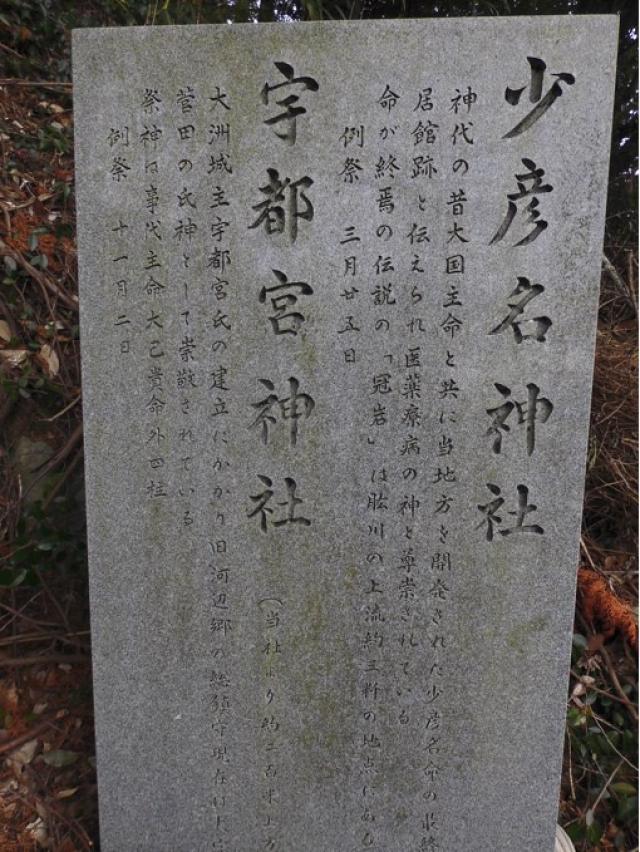 少彦名神社
神代の昔大国主命と共に当地方を開発された少彦名命の最終
居館跡と伝えられ医薬療病の神と尊崇されている
命が終焉の伝説の「冠岩」は肱川の上流約三粁の地点にある
例祭 三月廿五日
宇都宮神社 （当社より約二百米上方
大洲城主宇都宮氏の建立にかかり旧河辺郷の総鎮守現在は大
菅田の氏神として崇敬されている
祭神は事代主命大己貴命外四柱
例祭 十一月二日